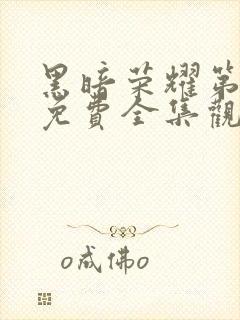 黑暗荣耀第
免費全集觀
o成佛o